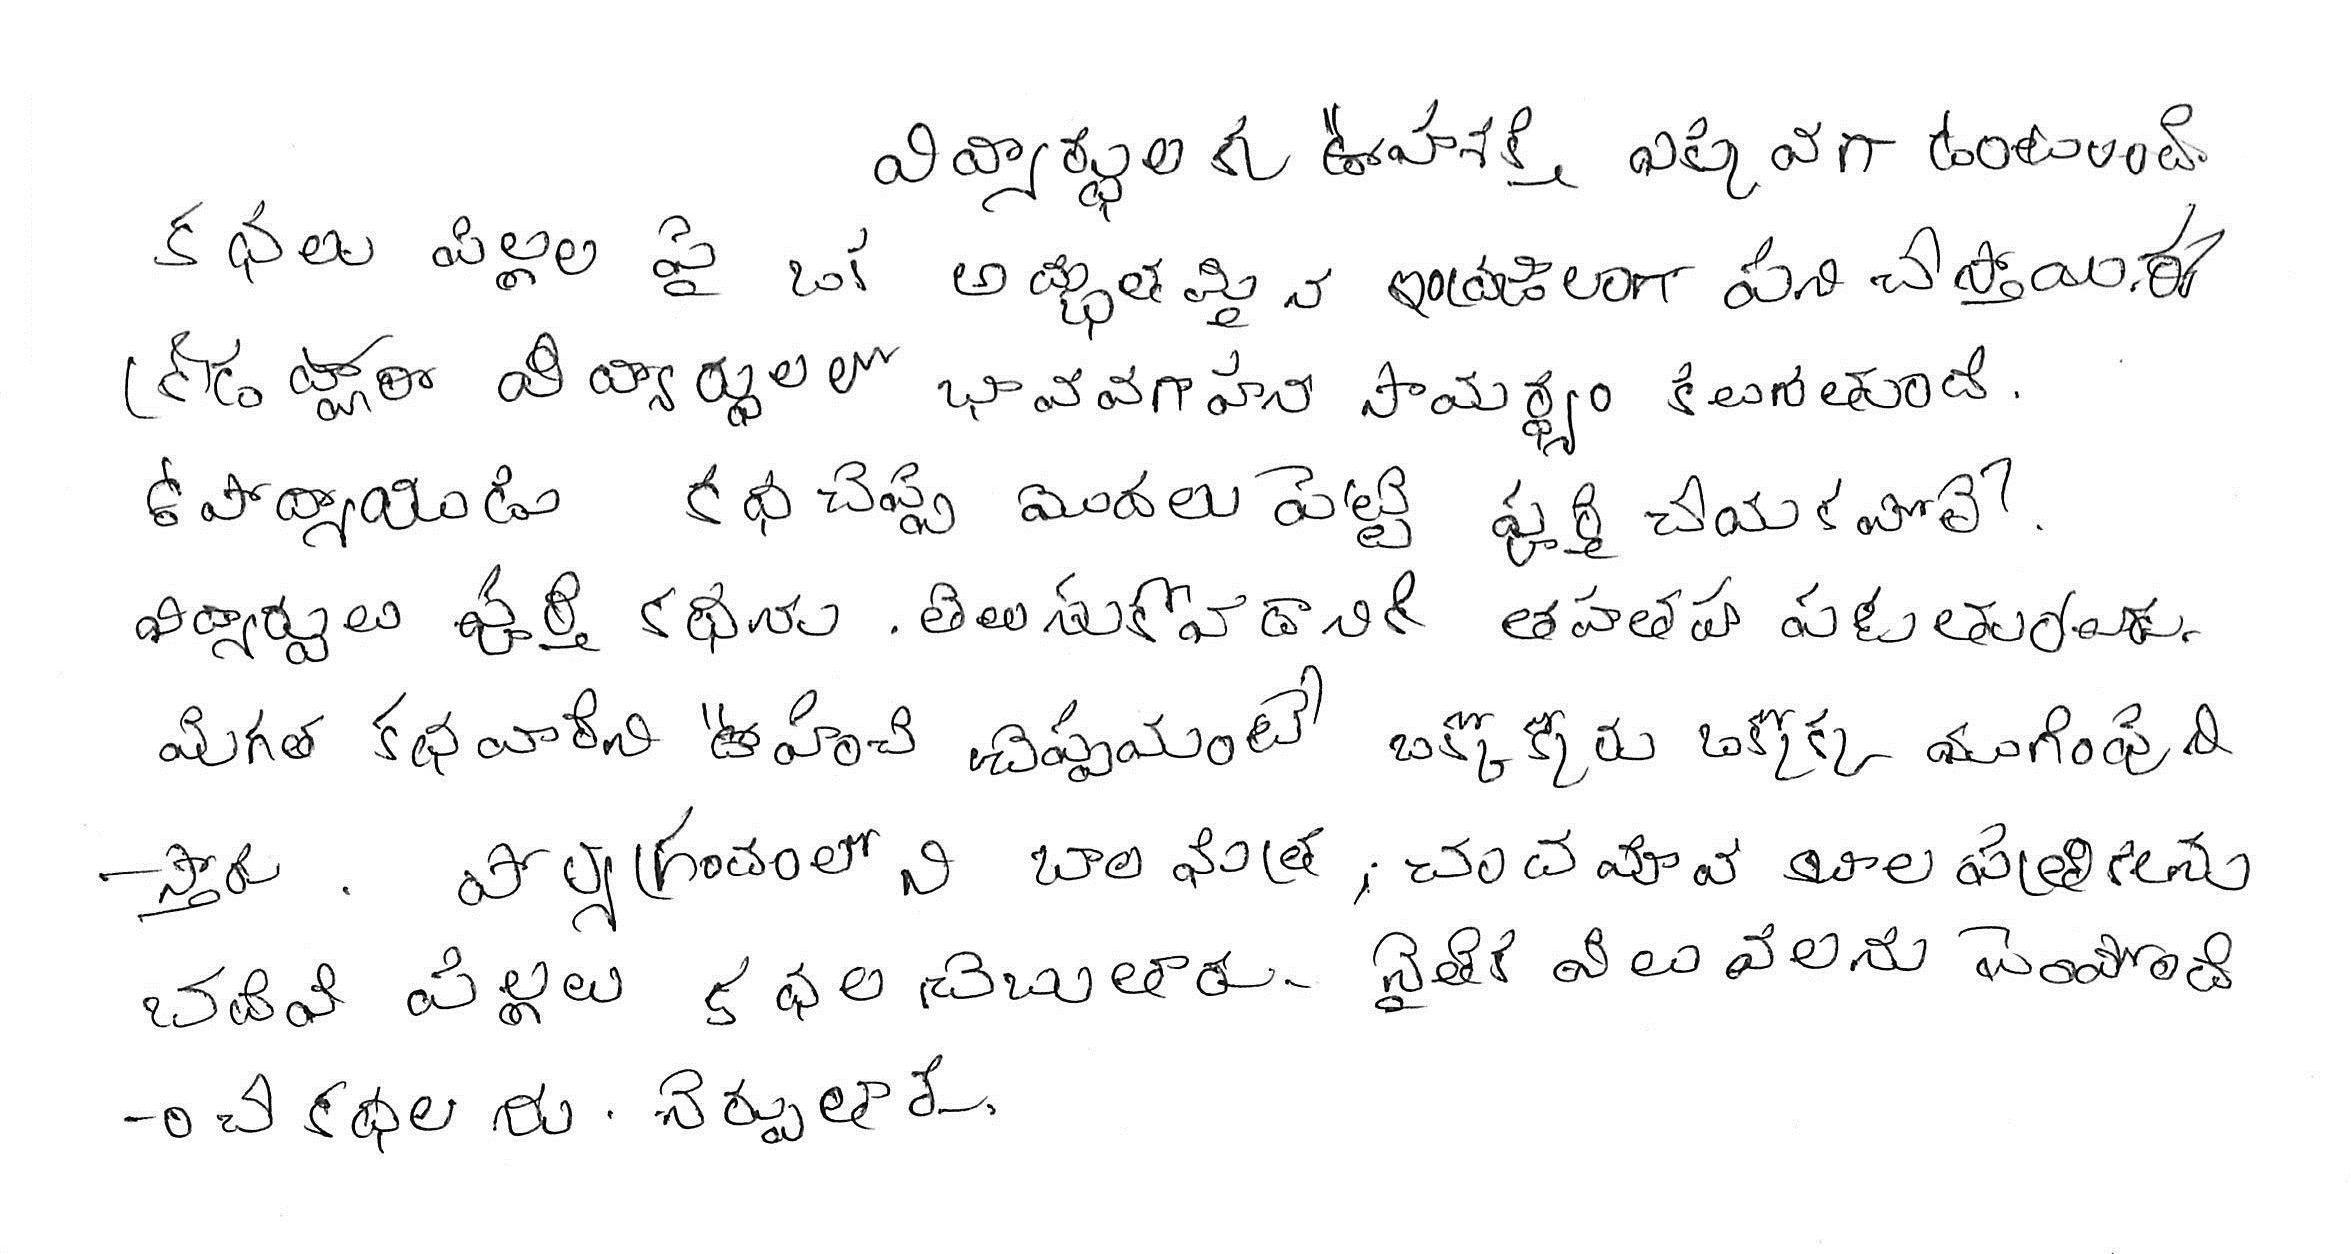 విద్యార్థులకు ఊహశక్తి ఎక్కువగా ఉంటుంది
కథలు పిల్లల పై ఒక అద్భుతమైన ఇంద్రజిలాగా పని చేస్తాయి. ఈ
క్రీడ ద్వారా విద్యార్థులలో భావవగాహన సామర్థ్యం కలుగుతుంది.
ఉపాధ్యాయుడు కథ చెప్ప మొదలు పెట్టి పూర్తి చేయకపోతే?.
విద్యార్థులు పూర్తి కథను . తెలుసుకోవడానికి తహతహ పడుతుంటారు.
మిగత కథ వారిని ఊహించి చెప్పమంటే ఒక్కొక్కొరు ఒక్కొక్క ముగింపుని
-స్తారు . పాఠ్యగ్రంథంలోని బాలమిత్ర, చందమామ బాల పత్రికలను
చదివి పిల్లలు కథల చెబుతారు. నైతిక విలువలను పెంపొంది
-ంచే కథలను . నేర్పుతారు.